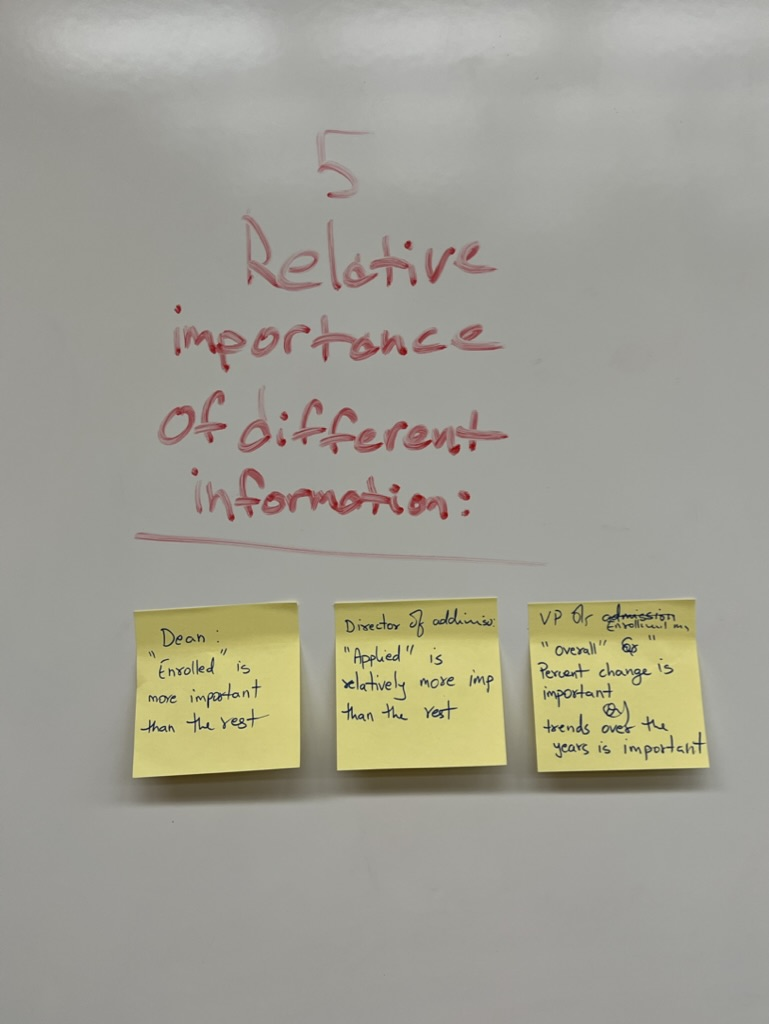 5
Relative
importance
of different
information:
Dean:
"Enrolled" is
more important
than the rest
Director of addimiso
"Applied" is
relatively more imp
than the rest
VP Or admission
Enrollment
"overall" "
Percent change is
important
trends over the
years is important